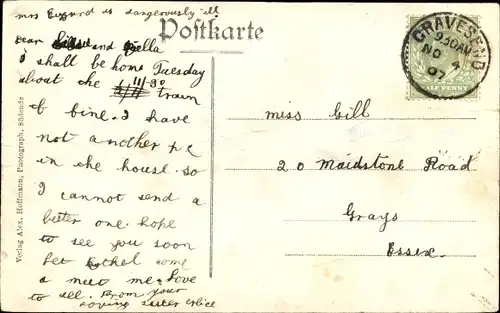 mrs is dangerously ill
Postkarte
dear and Bella
i shall be home Tuesday
about the train
if fine. I have
not another p c
in the house. so
I cannot send a
better one. hope
to see you soon
Let Ethel come
& meet me. Love
to all. From your
loving sister
GRAVESEND
9 30 AM
NO 4
07
HALF PENNY
miss Gill
20 Maidstone Road
Grays
Essex.
Verlag Alex. Hoffmann, Photograph,